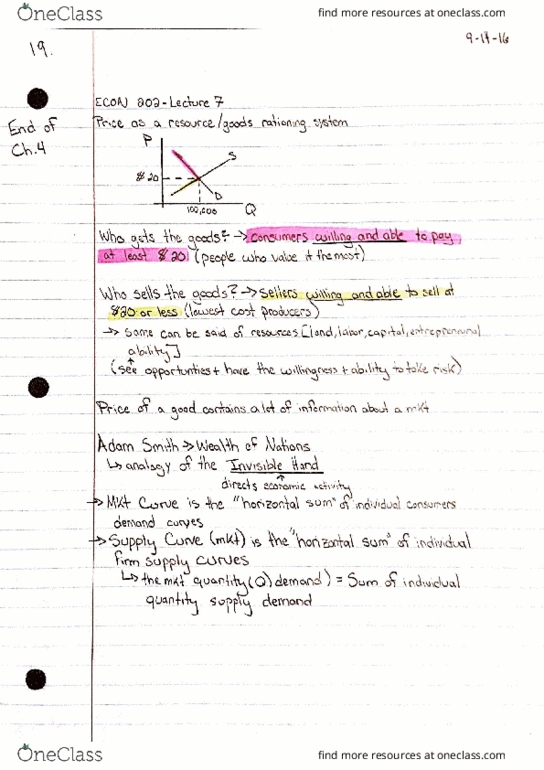 OneClass
find more resources at oneclass.com
19.
9-19-16
ECON 202-Lecture 7
End of
Ch.4
Price as a resource/goods rationing system
P
S
$20
D
100,000
Q
Who gets the goods? → consumers willing and able to pay
at least $20 (people who value it the most)
Who sells the goods? → sellers willing and able to sell at
$20 or less (lowest cost producers)
→ Same can be said of resources [land, labor, capital, entreprenurial
ability]
(see opportunties + have the willingness + ability to take risk)
Price of a good contains a lot of information about a mkt
Adam Smith → Wealth of Nations
↳ analogy of the Invisible Hand
directs economic activity
→ Mkt Curve is the "horizontal sum" of individual consumers
demand curves
→ Supply Curve (mkt) is the "horizontal sum" of individual
firm supply curves
↳ the mkt quantity (Q) demand) = Sum of individual
quantity supply demand
OneClass
find more resources at oneclass.com